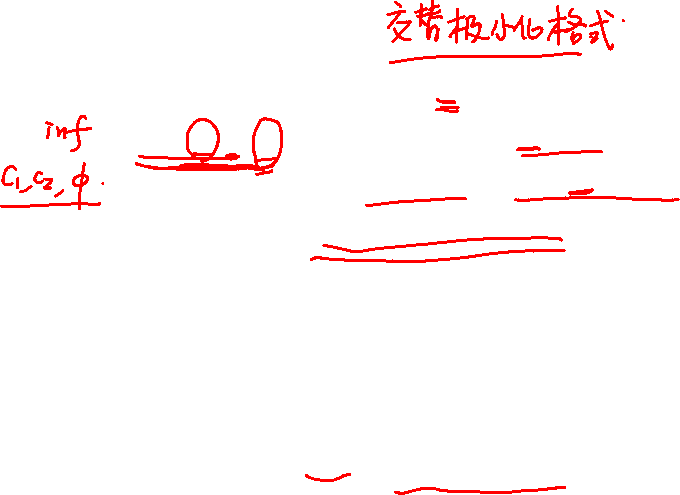 交替极小化格式.
inf
C₁, C₂, ϕ.